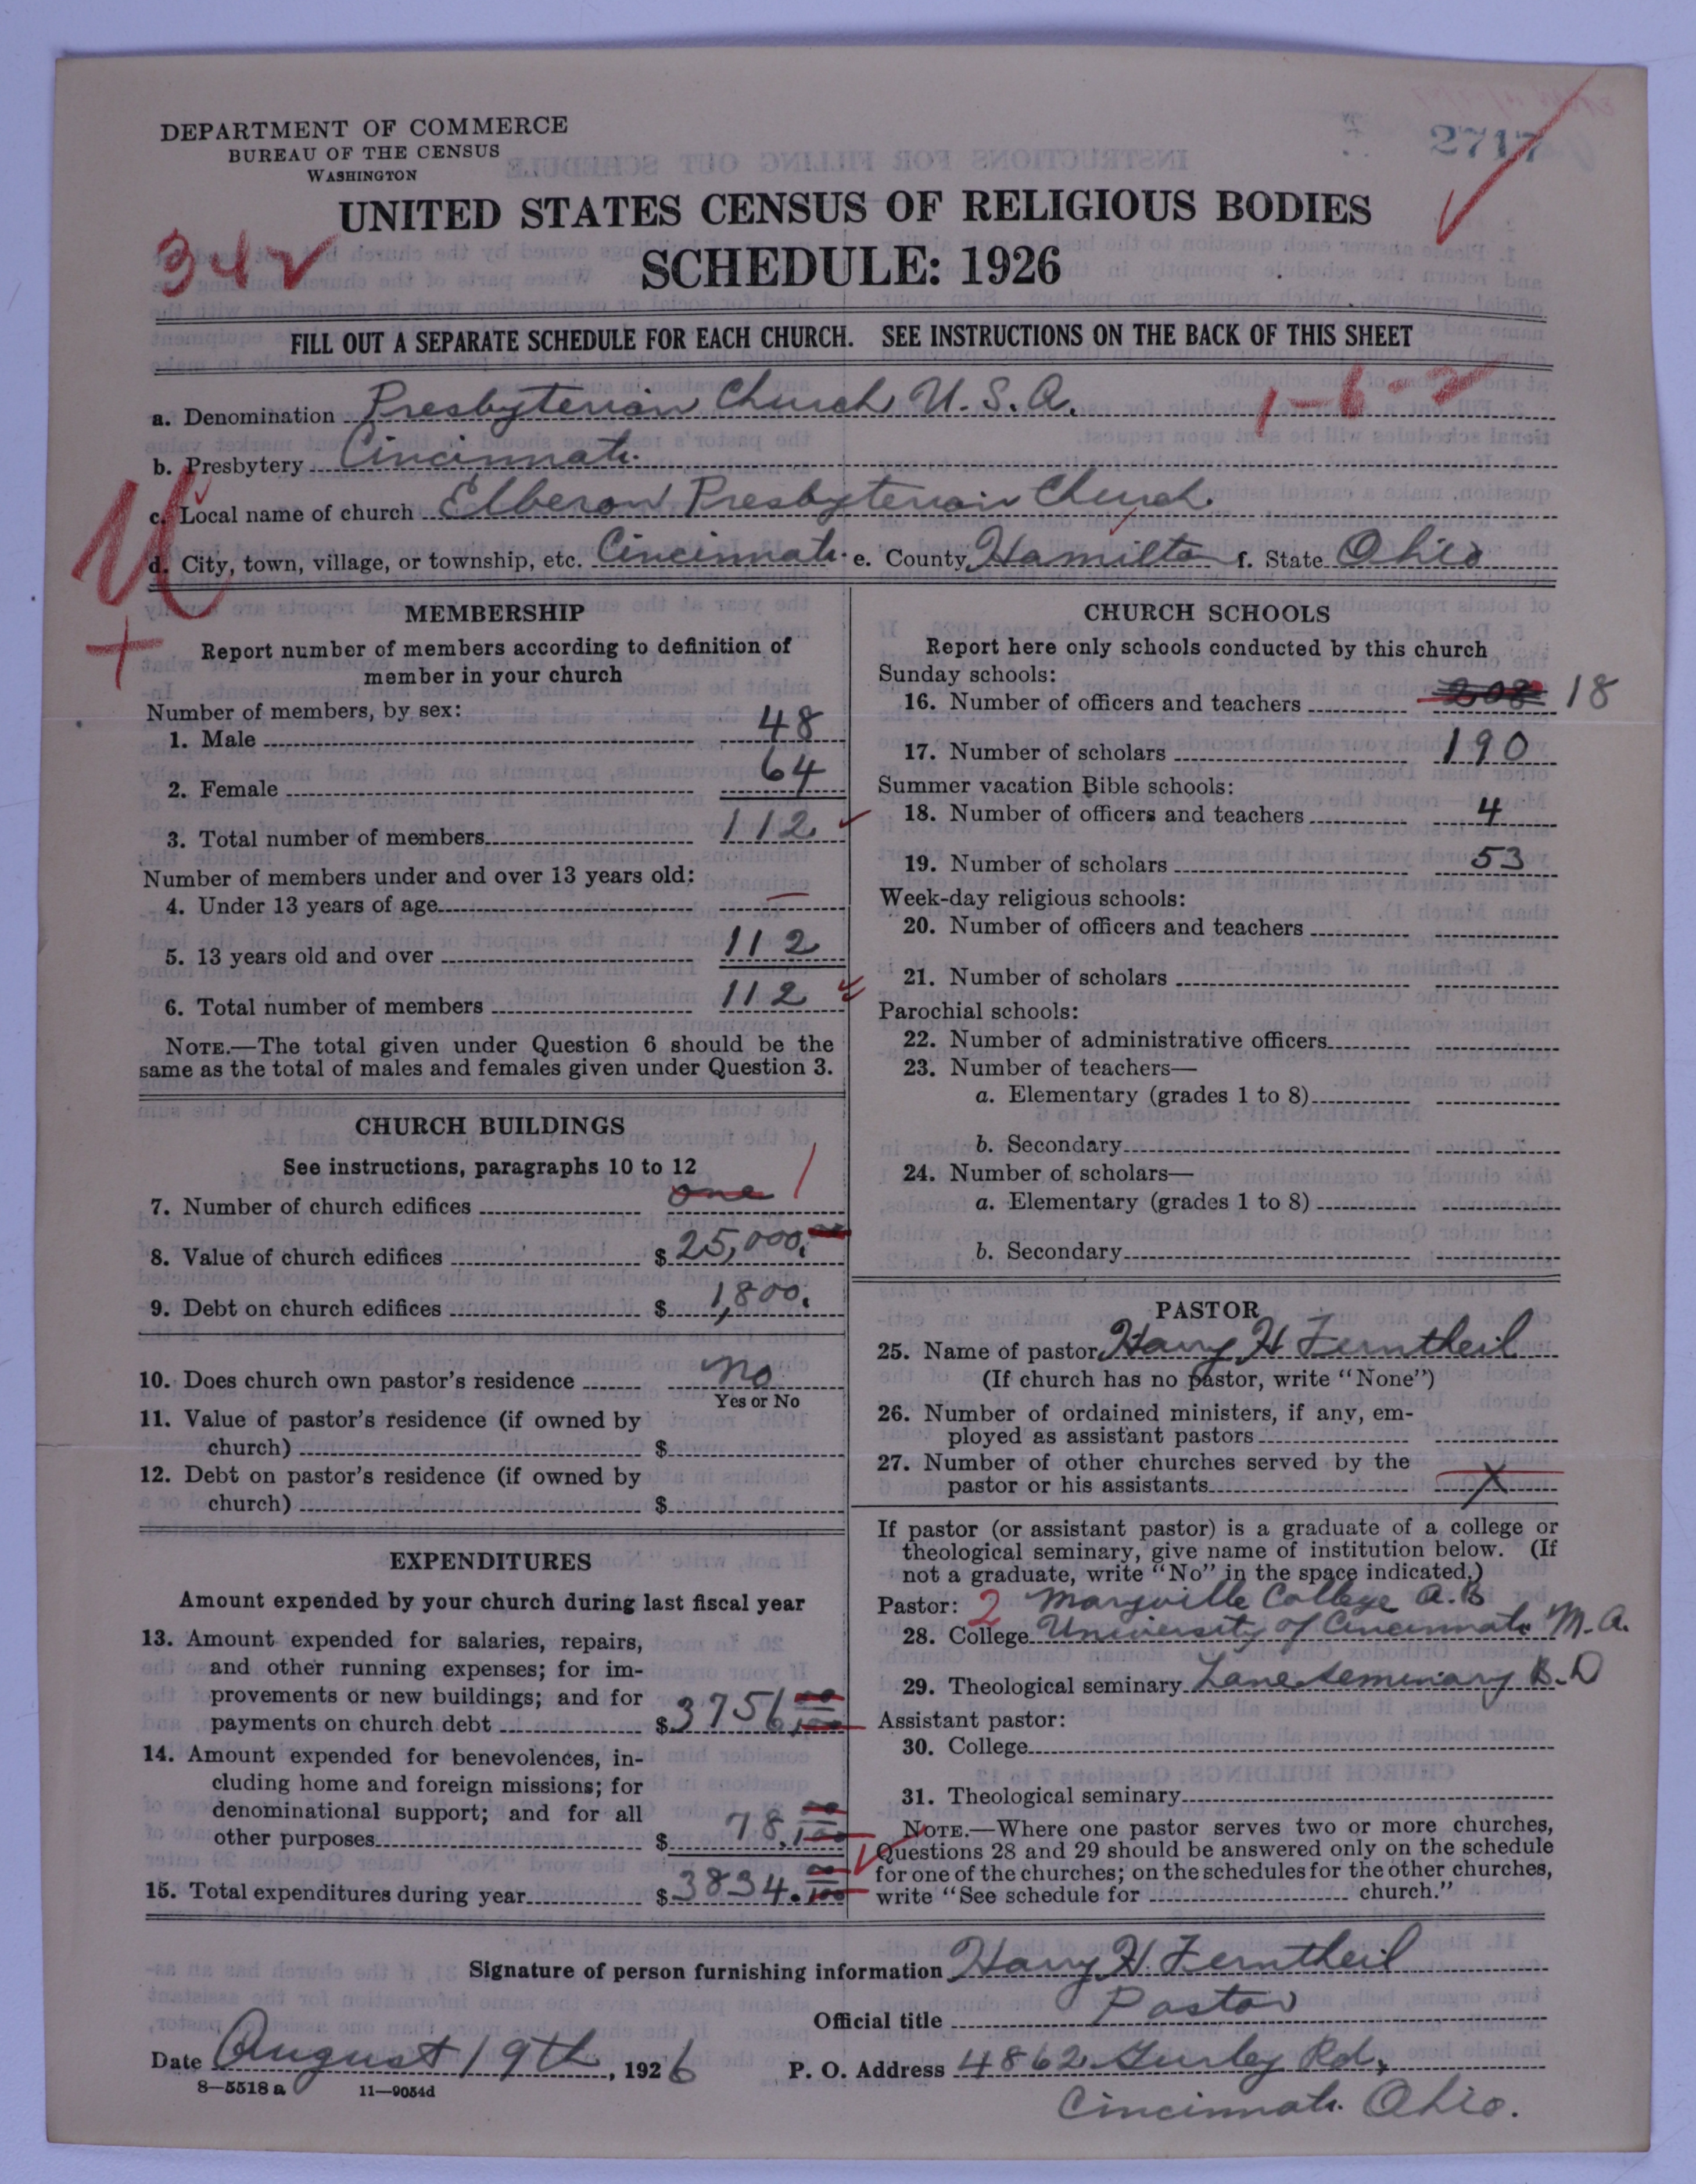 DEPARTMENT OF COMMERCE
BUREAU OF THE CENSUS
WASHINGTON
2717
UNITED STATES CENSUS OF RELIGIOUS BODIES
342
SCHEDULE: 1926
FILL OUT A SEPARATE SCHEDULE FOR EACH CHURCH. SEE INSTRUCTIONS ON THE BACK OF THIS SHEET
a. Denomination Presbyterian Church U.S.A. 1-6-2
b. Presbytery Cincinnati
c. Local name of church Elberon Presbyterian Church
d. City, town, village, or township, etc. Cincinnati e. County Hamilton f. State Ohio
MEMBERSHIP
Report number of members according to definition of
member in your church
Number of members, by sex:
1. Male 48
2. Female 64
3. Total number of members 112
Number of members under and over 13 years old:
4. Under 13 years of age —
5. 13 years old and over 112
6. Total number of members 112
NOTE.—The total given under Question 6 should be the
same as the total of males and females given under Question 3.
CHURCH BUILDINGS
See instructions, paragraphs 10 to 12
7. Number of church edifices one 1
8. Value of church edifices $ 25,000.00
9. Debt on church edifices $ 1,800.
10. Does church own pastor's residence no
Yes or No
11. Value of pastor's residence (if owned by
church) $
12. Debt on pastor's residence (if owned by
church) $
EXPENDITURES
Amount expended by your church during last fiscal year
13. Amount expended for salaries, repairs,
and other running expenses; for im-
provements or new buildings; and for
payments on church debt $ 3756 00/100
14. Amount expended for benevolences, in-
cluding home and foreign missions; for
denominational support; and for all
other purposes $ 78. 00/100
15. Total expenditures during year $ 3834. 00/100
CHURCH SCHOOLS
Report here only schools conducted by this church
Sunday schools:
16. Number of officers and teachers 208 18
17. Number of scholars 190
Summer vacation Bible schools:
18. Number of officers and teachers 4
19. Number of scholars 53
Week-day religious schools:
20. Number of officers and teachers
21. Number of scholars
Parochial schools:
22. Number of administrative officers
23. Number of teachers—
a. Elementary (grades 1 to 8)
b. Secondary
24. Number of scholars—
a. Elementary (grades 1 to 8)
b. Secondary
PASTOR
25. Name of pastor Harry H Ferntheil
(If church has no pastor, write "None")
26. Number of ordained ministers, if any, em-
ployed as assistant pastors
27. Number of other churches served by the
pastor or his assistants X
If pastor (or assistant pastor) is a graduate of a college or
theological seminary, give name of institution below. (If
not a graduate, write "No" in the space indicated.)
Pastor: 2 Maryville College A.B
28. College University of Cincinnati M.A.
29. Theological seminary Lane Seminary B.D
Assistant pastor:
30. College
31. Theological seminary
NOTE.—Where one pastor serves two or more churches,
Questions 28 and 29 should be answered only on the schedule
for one of the churches; on the schedules for the other churches,
write "See schedule for church."
Signature of person furnishing information Harry H. Ferntheil
Official title Pastor
Date August 19th, 1926 P. O. Address 4862 Gurley Rd,
8—5518 a 11—9054d
Cincinnati Ohio.